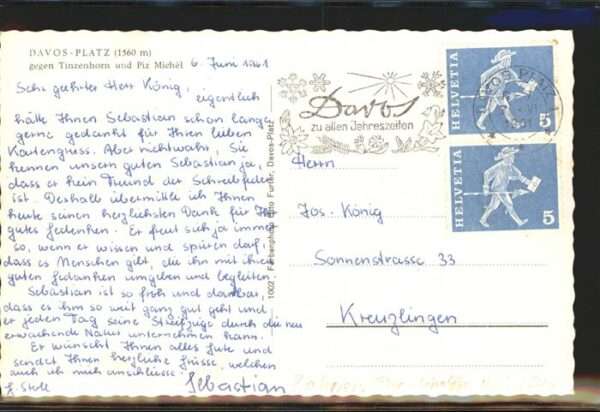 DAVOS-PLATZ (1560 m)
gegen Tinzenhorn und Piz Michèl
6. Juni 1961
Sehr geehrter Herr König,
eigentlich
hätte Ihnen Sebastian schon lange
gerne gedankt für Ihren lieben
Kartengruss. Aber nichtwahr, Sie
kennen unsern guten Sebastian ja,
dass er kein Freund der Schreibfeder
ist. Deshalb übermittle ich Ihnen
heute seinen herzlichsten Dank für Ihr
gutes Gedenken. Er freut sich ja immer
so, wenn er wissen und spüren darf,
dass es Menschen gibt, die ihn mit ihren
guten Gedanken umgeben und begleiten.
Sebastian ist so froh und dankbar,
dass es ihm so weit ganz gut geht und
er jeden Tag seine Streifzüge durch die neu
erwachende Natur unternehmen kann.
Er wünscht Ihnen alles Gute und
sendet Ihnen herzliche Grüsse, welchen
auch ich mich anschliesse.
Sebastian
1002 Farbenphoto Furter, Davos-Platz
Davos
zu allen Jahreszeiten
DAVOS PLATZ 1
HELVETIA 5
HELVETIA 5
Herrn
Jos. König
Sonnenstrasse 33
Kreuzlingen